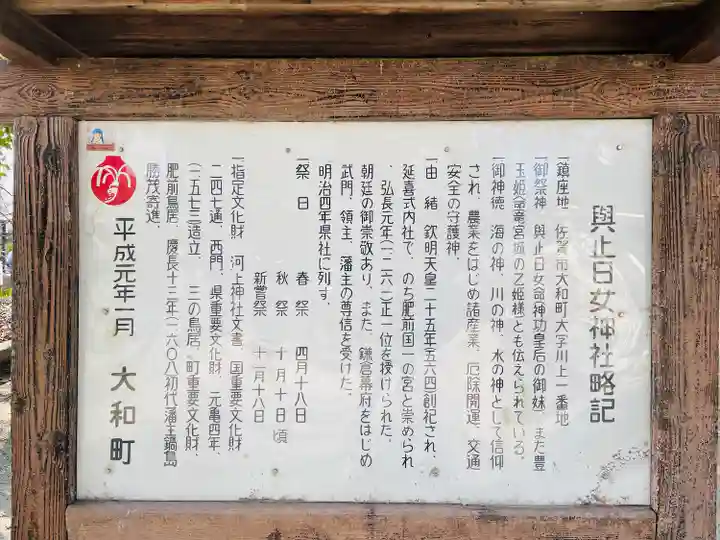 與止日女神社略記
一鎮座地　佐賀市大和町大字川上一番地
一御祭神　與止日女命神功皇后の御妹）また豊
玉姫命竜宮城の乙姫様とも伝えられている。
一御神徳　海の神、川の神、水の神として信仰
され、農業をはじめ諸産業、厄除開運、交通
安全の守護神。
一由　緒　欽明天皇二十五年五六四創祀され、
延喜式内社で、のち肥前国一の宮と崇められ
、弘長元年（一二六一）正一位を授けられた。
朝廷の御崇敬あり、また、鎌倉幕府をはじめ
武門、領主、藩主の尊信を受けた。
明治四年県社に列す。
一祭　日　　春　祭　四月十八日
秋　祭　十月十日頃
新嘗祭　十一月十八日
一指定文化財　河上神社文書、国重要文化財
二四七通、西門、県重要文化財、元亀四年、
（一五七三造立、三の鳥居、町重要文化財、
肥前鳥居、慶長十三年（一六〇八初代藩主鍋島
勝茂寄進、
平成元年一月　大和町